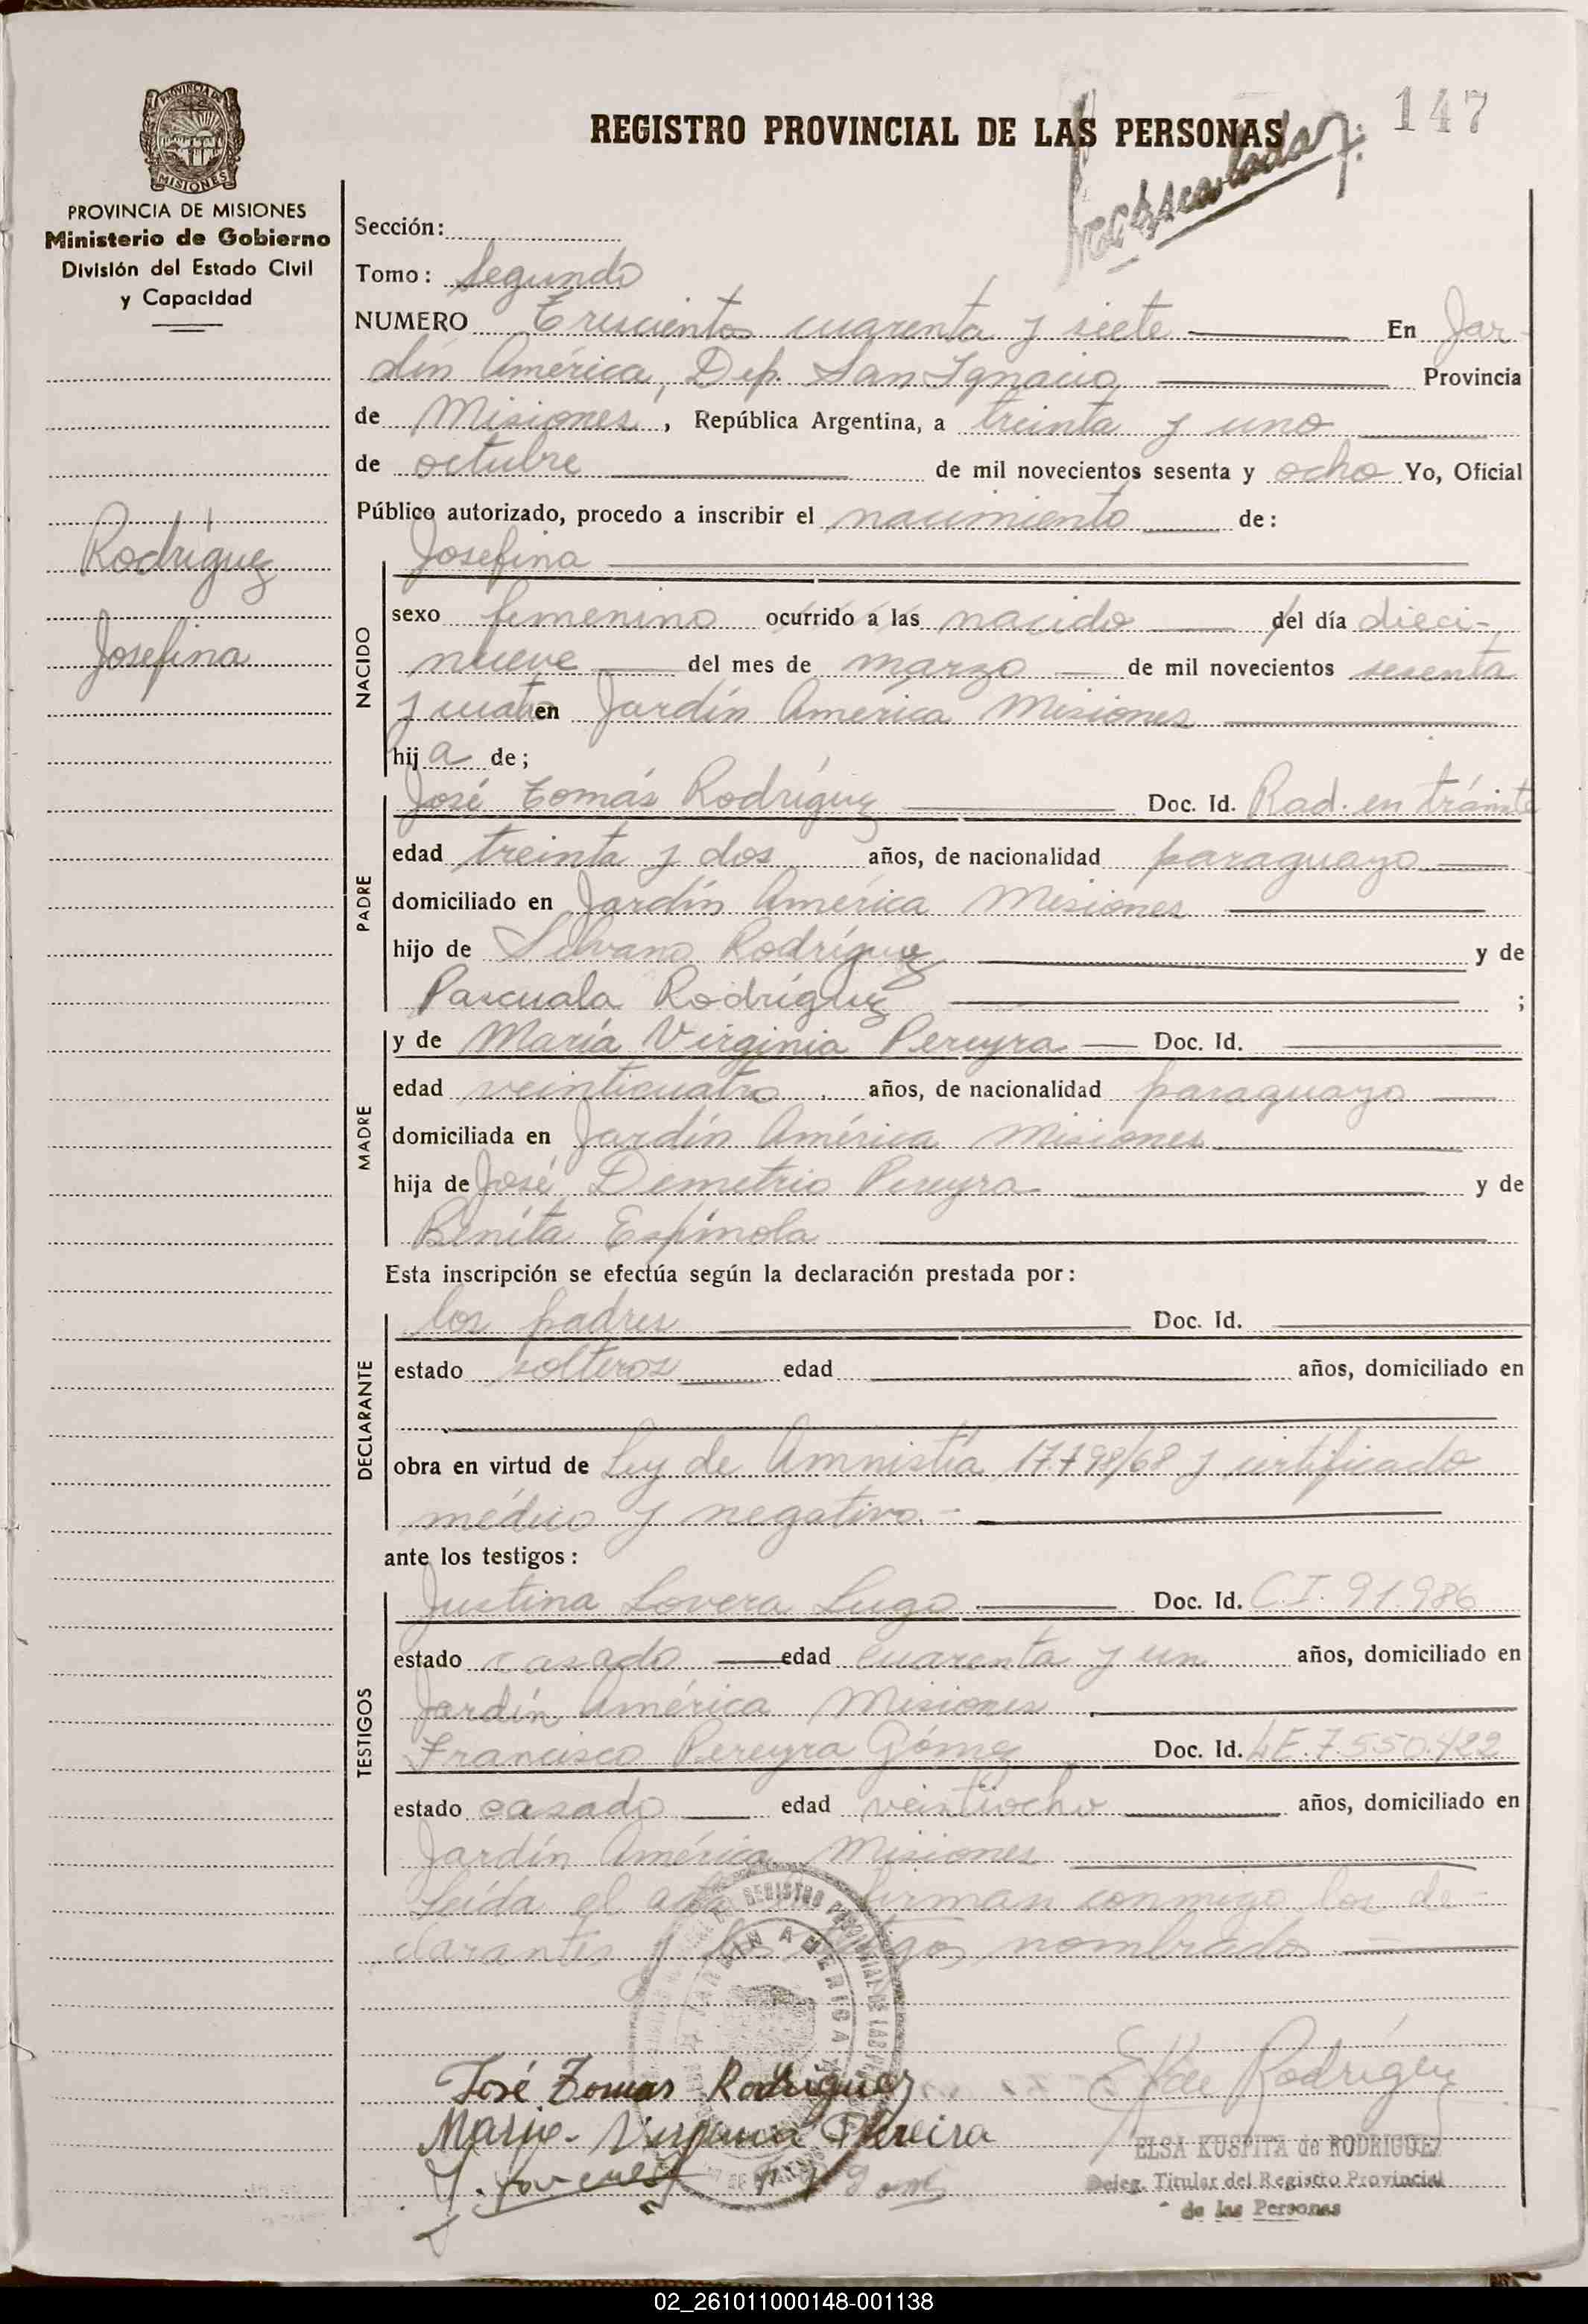 REGISTRO PROVINCIAL DE LAS PERSONAS
147
PROVINCIA DE MISIONES
Ministerio de Gobierno
División del Estado Civil
y Capacidad
Rodríguez
Josefina
Sección:
Tomo: Segundo
NUMERO Trescientos cuarenta y siete En Jar-
dín América, Dep. San Ignacio Provincia
de Misiones, República Argentina, a treinta y uno
de octubre de mil novecientos sesenta y ocho Yo, Oficial
Público autorizado, procedo a inscribir el nacimiento de:
NACIDO
Josefina
sexo femenino ocurrido a las nacido del día dieci-
nueve del mes de marzo de mil novecientos sesenta
y cuatro en Jardín América Misiones
hija de;
PADRE
José Tomás Rodríguez Doc. Id. Rad. en trámite
edad treinta y dos años, de nacionalidad paraguayo
domiciliado en Jardín América Misiones
hijo de Silvano Rodríguez y de
Pascuala Rodríguez ;
MADRE
y de María Virginia Pereyra Doc. Id.
edad veinticuatro años, de nacionalidad paraguayo
domiciliada en Jardín América Misiones
hija de José Demetrio Pereyra y de
Benita Espínola
Esta inscripción se efectúa según la declaración prestada por:
DECLARANTE
los padres Doc. Id.
estado solteros edad años, domiciliado en
obra en virtud de Ley de Amnistía 17.798/68 y certificado
médico y negativo.-
ante los testigos:
TESTIGOS
Justina Lovera Lugo Doc. Id. C.I. 91.986
estado casado edad cuarenta y un años, domiciliado en
Jardín América Misiones
Francisco Pereyra Gómez Doc. Id. LE. 7.550.422
estado casado edad veintiocho años, domiciliado en
Jardín América Misiones
Leída el acta firman conmigo los de-
clarantes y los testigos nombrados
José Tomas Rodriguez
Maria Virginia Pereira
E K de Rodríguez
ELSA KUSPITA de RODRIGUEZ
Deleg. Titular del Registro Provincial
de las Personas
02_261011000148-001138